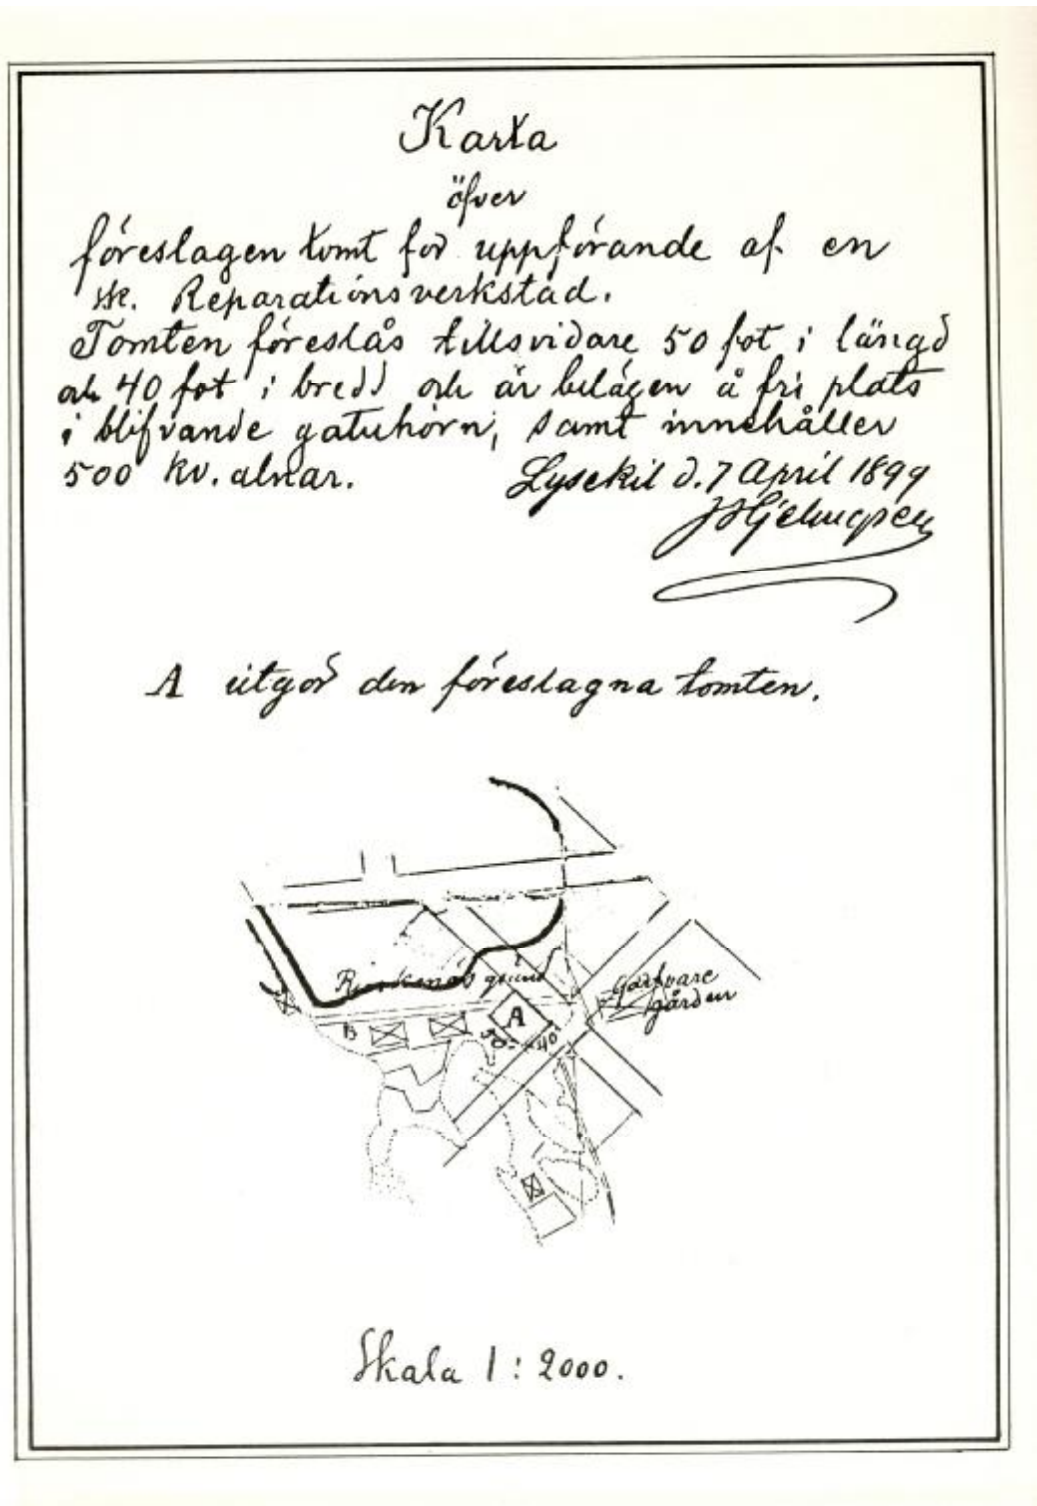 Karta
öfver
föreslagen tomt för uppförande af en
sk. Reparationsverkstad.
Tomten föreslås tillsvidare 50 fot i längd
och 40 fot i bredd och är belägen å fri plats
i blifvande gatuhörn, samt innehåller
500 kv. alnar.
Lysekil d. 7 April 1899
A utgör den föreslagna tomten.
grund
Garfvare
gården
A
B
50
40
Skala 1:2000.